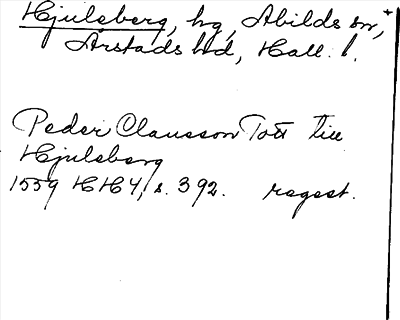 Hjulsberg, hg, Abilds sn, +
Årstads hd, Hall. l.
Peder Clausson Tott till
Hjulsberg
1559 HH 4, s. 392. regest.